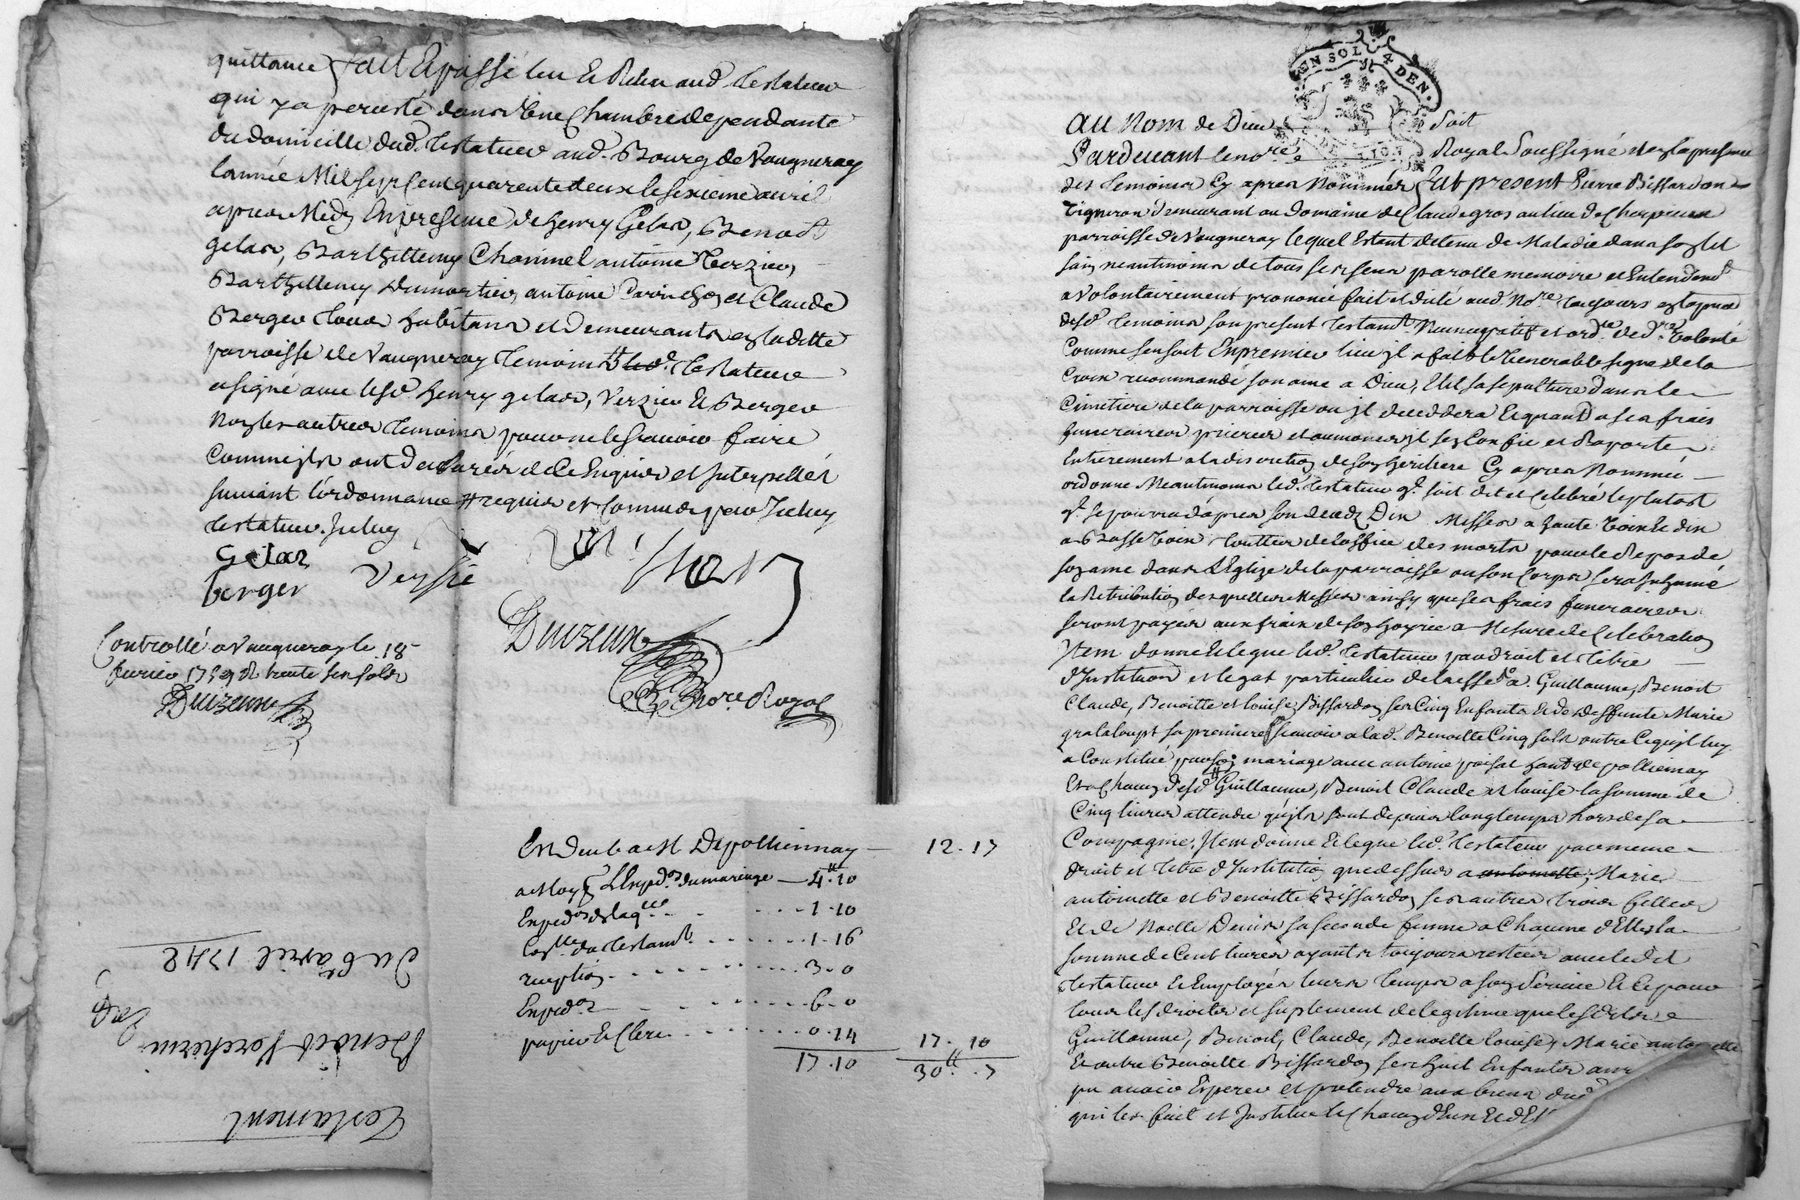 quittance fait et passé leu et Relu aud. testateur
qui y a persisté dans une chambre dependante
du domicille dud. testateur aud. Bourg de Vaugneray
l'année Mil sept cent quarente deux le sixieme avril
apres Midy En presence de henry Gelas, Benoit
gelas, Barthellemy Chommel antoine Verzieu
Barthellemy Dumortier, antoine et Claude
Berger tous habitans et demeurants en laditte
parroisse de Vaugneray temoins led. testateur
a signé avec lesd. henry gelas, Verzieu et Berger
Non les autres temoins pour ne le scavoir faire
comme ils ont declarés de ce Enquis et interpellés
suivant l'ordonnance requis et comme par
testateur.
Gelas
berger Versie
Duizeux
Nore Royal
Controllé a Vaugneray le 18
fevrier
Duizeux
Testament
Benoit
Du 6e avril 1742
En Deub a Mr Depolliennay 12.17
a Moy L'Exped.on du mariage 4tt.10
Exped.on de la q.ce 1.10
du testam.t 1.16
reception 3.0
Exped.on 6.0
papier et Clerc 0.14 17.10
17.10 30tt.7
UN SOL 4 DEN.
DE LYON
Au Nom de Dieu Soit
Pardevant le no.re Royal Soussigné et en la presence
des temoins Cy apres Nommés fut present Pierre Bissardon
Vigneron demeurant au domaine de Claude gros au lieu de
parroisse de Vaugneray lequel Estant detenu de Maladie dans son lit
sain neantmoins de tous ses sens parolle memoire et Entendem.t
a Volontairement prononcé fait et dicté aud. No.re toujours en la presence
desd. temoins son present testam.t Nuncupatif et ord.ce de d.re Volonté
Comme s'en suit En premier lieu il a fait le Venerable signe de la
Croix recommandé son ame a Dieu, Elit sa sepulture dans le
Cimetiere de la parroisse ou il deceddera Et quand a ses frais
funeraires prieres et aumones il s'en confie et raporte
Entierement a la discretion de son heritiere Cy apres Nommée
ordonne Neantmoins led. testateur q. soit dit et Celebré le plutost
q. se pourra d'apres son decedz Dix Messes a haute Voix et dix
a Basse Voix touttes de l'office des morts pour le Repos de
son ame dans l'Eglize de la parroisse ou son Corps sera inhumé
la Retribution desquelles Messes ainsy que ses frais funeraires
seront payés aux frais de son hoyrie a Mesure de Celebration
Item donne Et legue led. testateur par droit et titre
d'institution et legat particulier delaisse a Guillaume, Benoit
Claude, Benoitte et louise Bissardon ses Cinq Enfants Et de Deffunte Marie
grataloup sa premiere scavoir a lad. Benoitte Cinq sols outre Ce qu'il luy
a Constitué par son mariage avec antoine hab.t de polliennay
Et a Chacun desd. Guillaume, Benoit Claude et louise la somme de
Cinq livres attendu qu'ils sont depuis longtemps hors de sa
Compagnie, Item donne Et legue led. testateur par meme
droit et titre d'institution que dessus a antoinette, Marie
antoinette et Benoitte Bissardon ses autres trois filles
Et de Noelle Denis sa seconde femme a Chacune d'Elles la
somme de Cent livres ayants toujours restées avec ledit
testateur Et Employés leurs temps a son service Et Ce pour
tous les droits et suplement de legitime que lesdits
Guillaume, Benoit, Claude, Benoitte louise, Marie antoinette
Et autre Benoitte Bissardon ses huit Enfants
pu avoir Esperer et pretendre aux biens dud.
qui les fait et Institue le Chacun d'Eux Et d'El